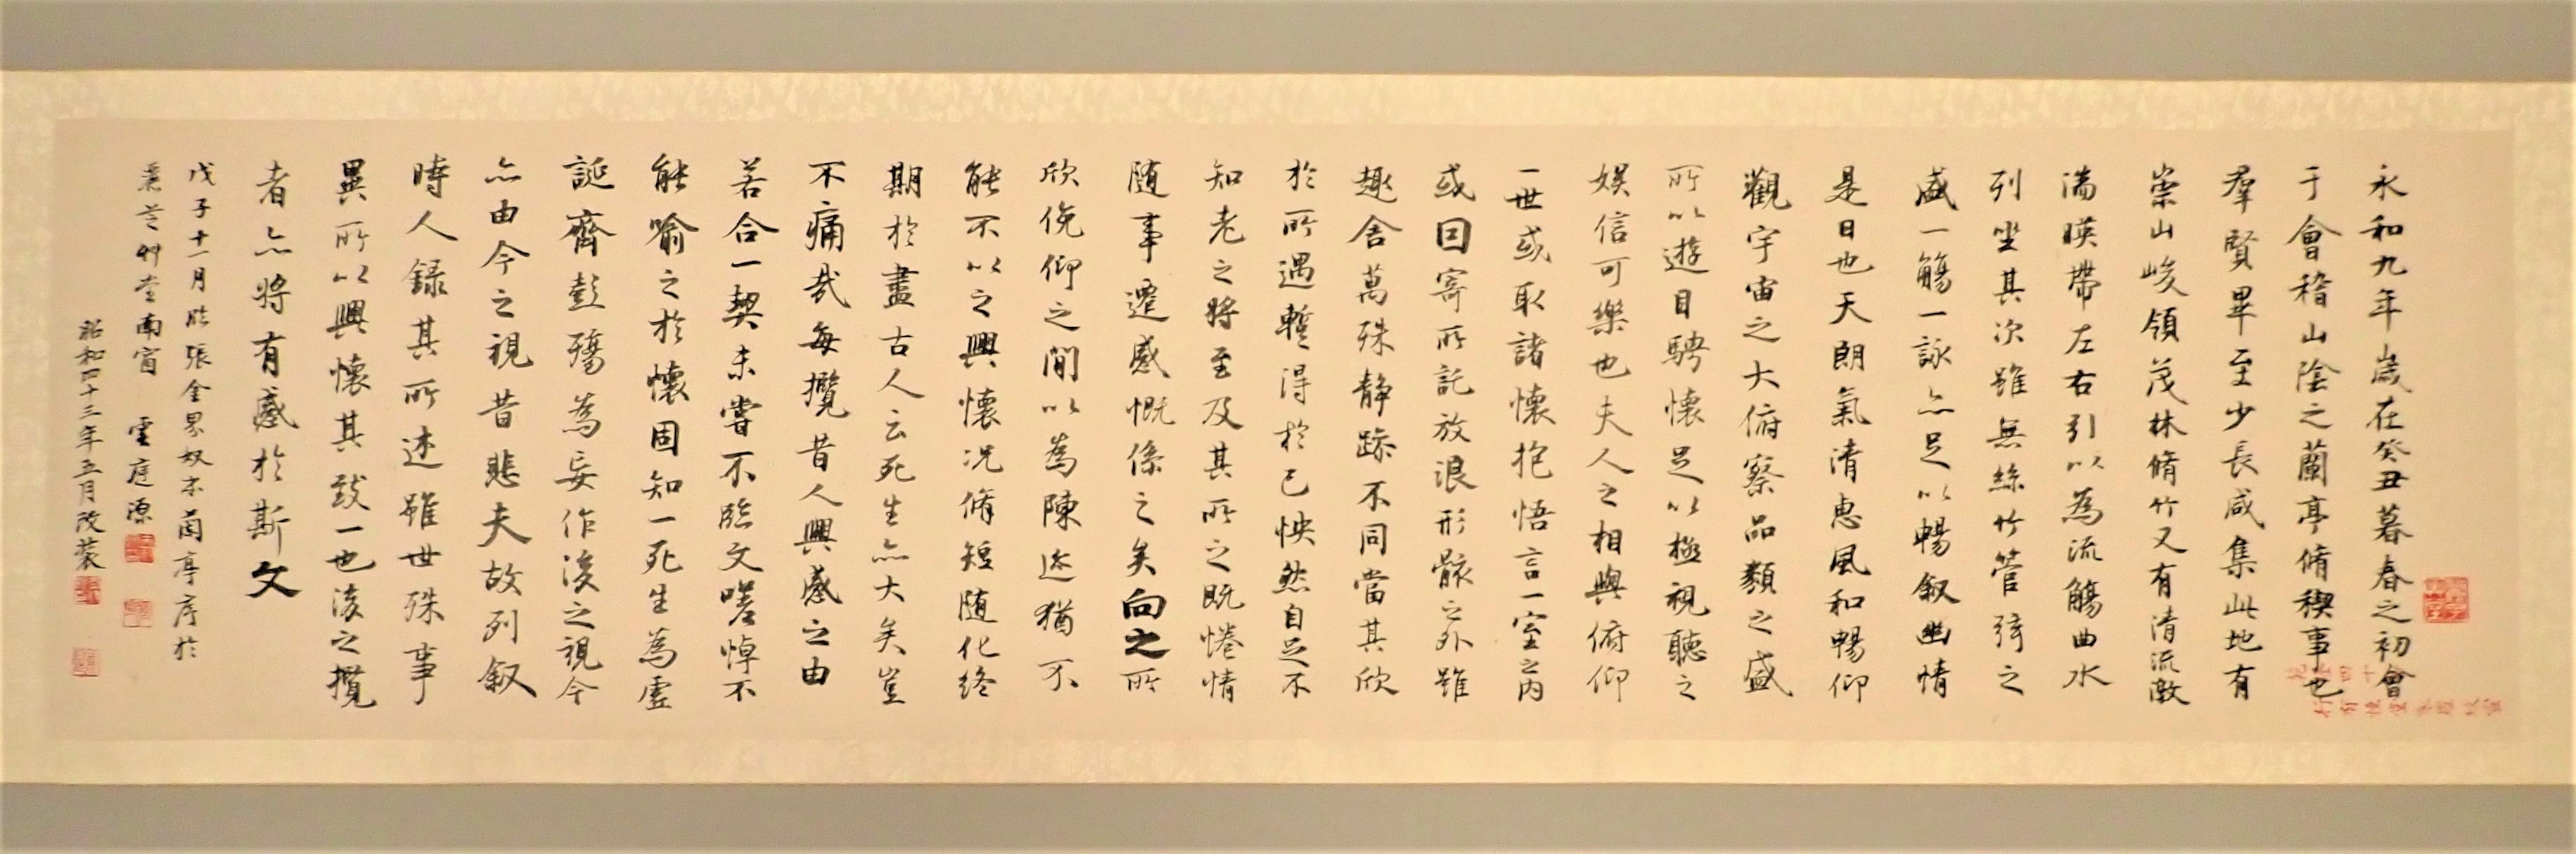 永和九年歲在癸丑暮春之初會
于會稽山陰之蘭亭脩稧事也
羣賢畢至少長咸集此地有
崇山峻領茂林脩竹又有清流激
湍暎帶左右引以為流觴曲水
列坐其次雖無絲竹管弦之
盛一觴一詠亦足以暢敘幽情
是日也天朗氣清惠風和暢仰
觀宇宙之大俯察品類之盛
所以遊目騁懷足以極視聽之
娛信可樂也夫人之相與俯仰
一世或取諸懷抱悟言一室之內
或因寄所託放浪形骸之外雖
趣舍萬殊靜躁不同當其欣
於所遇蹔得於己怏然自足不
知老之將至及其所之既惓情
隨事遷感慨係之矣向之所
欣俛仰之閒以為陳迹猶不
能不以之興懷況脩短隨化終
期於盡古人云死生亦大矣豈
不痛哉每攬昔人興感之由
若合一契未嘗不臨文嗟悼不
能喻之於懷固知一死生為虛
誕齊彭殤為妄作後之視今
亦由今之視昔悲夫故列敘
時人錄其所述雖世殊事
異所以興懷其致一也後之攬
者亦將有感於斯文
戊子十一月臨張金界奴本蘭亭序於
南窗 雲庭源
昭和四十三年五月改装